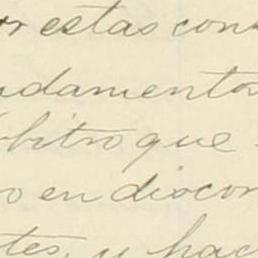 or estas con
ndamento
rbitro que
o en discor
tes, y hac